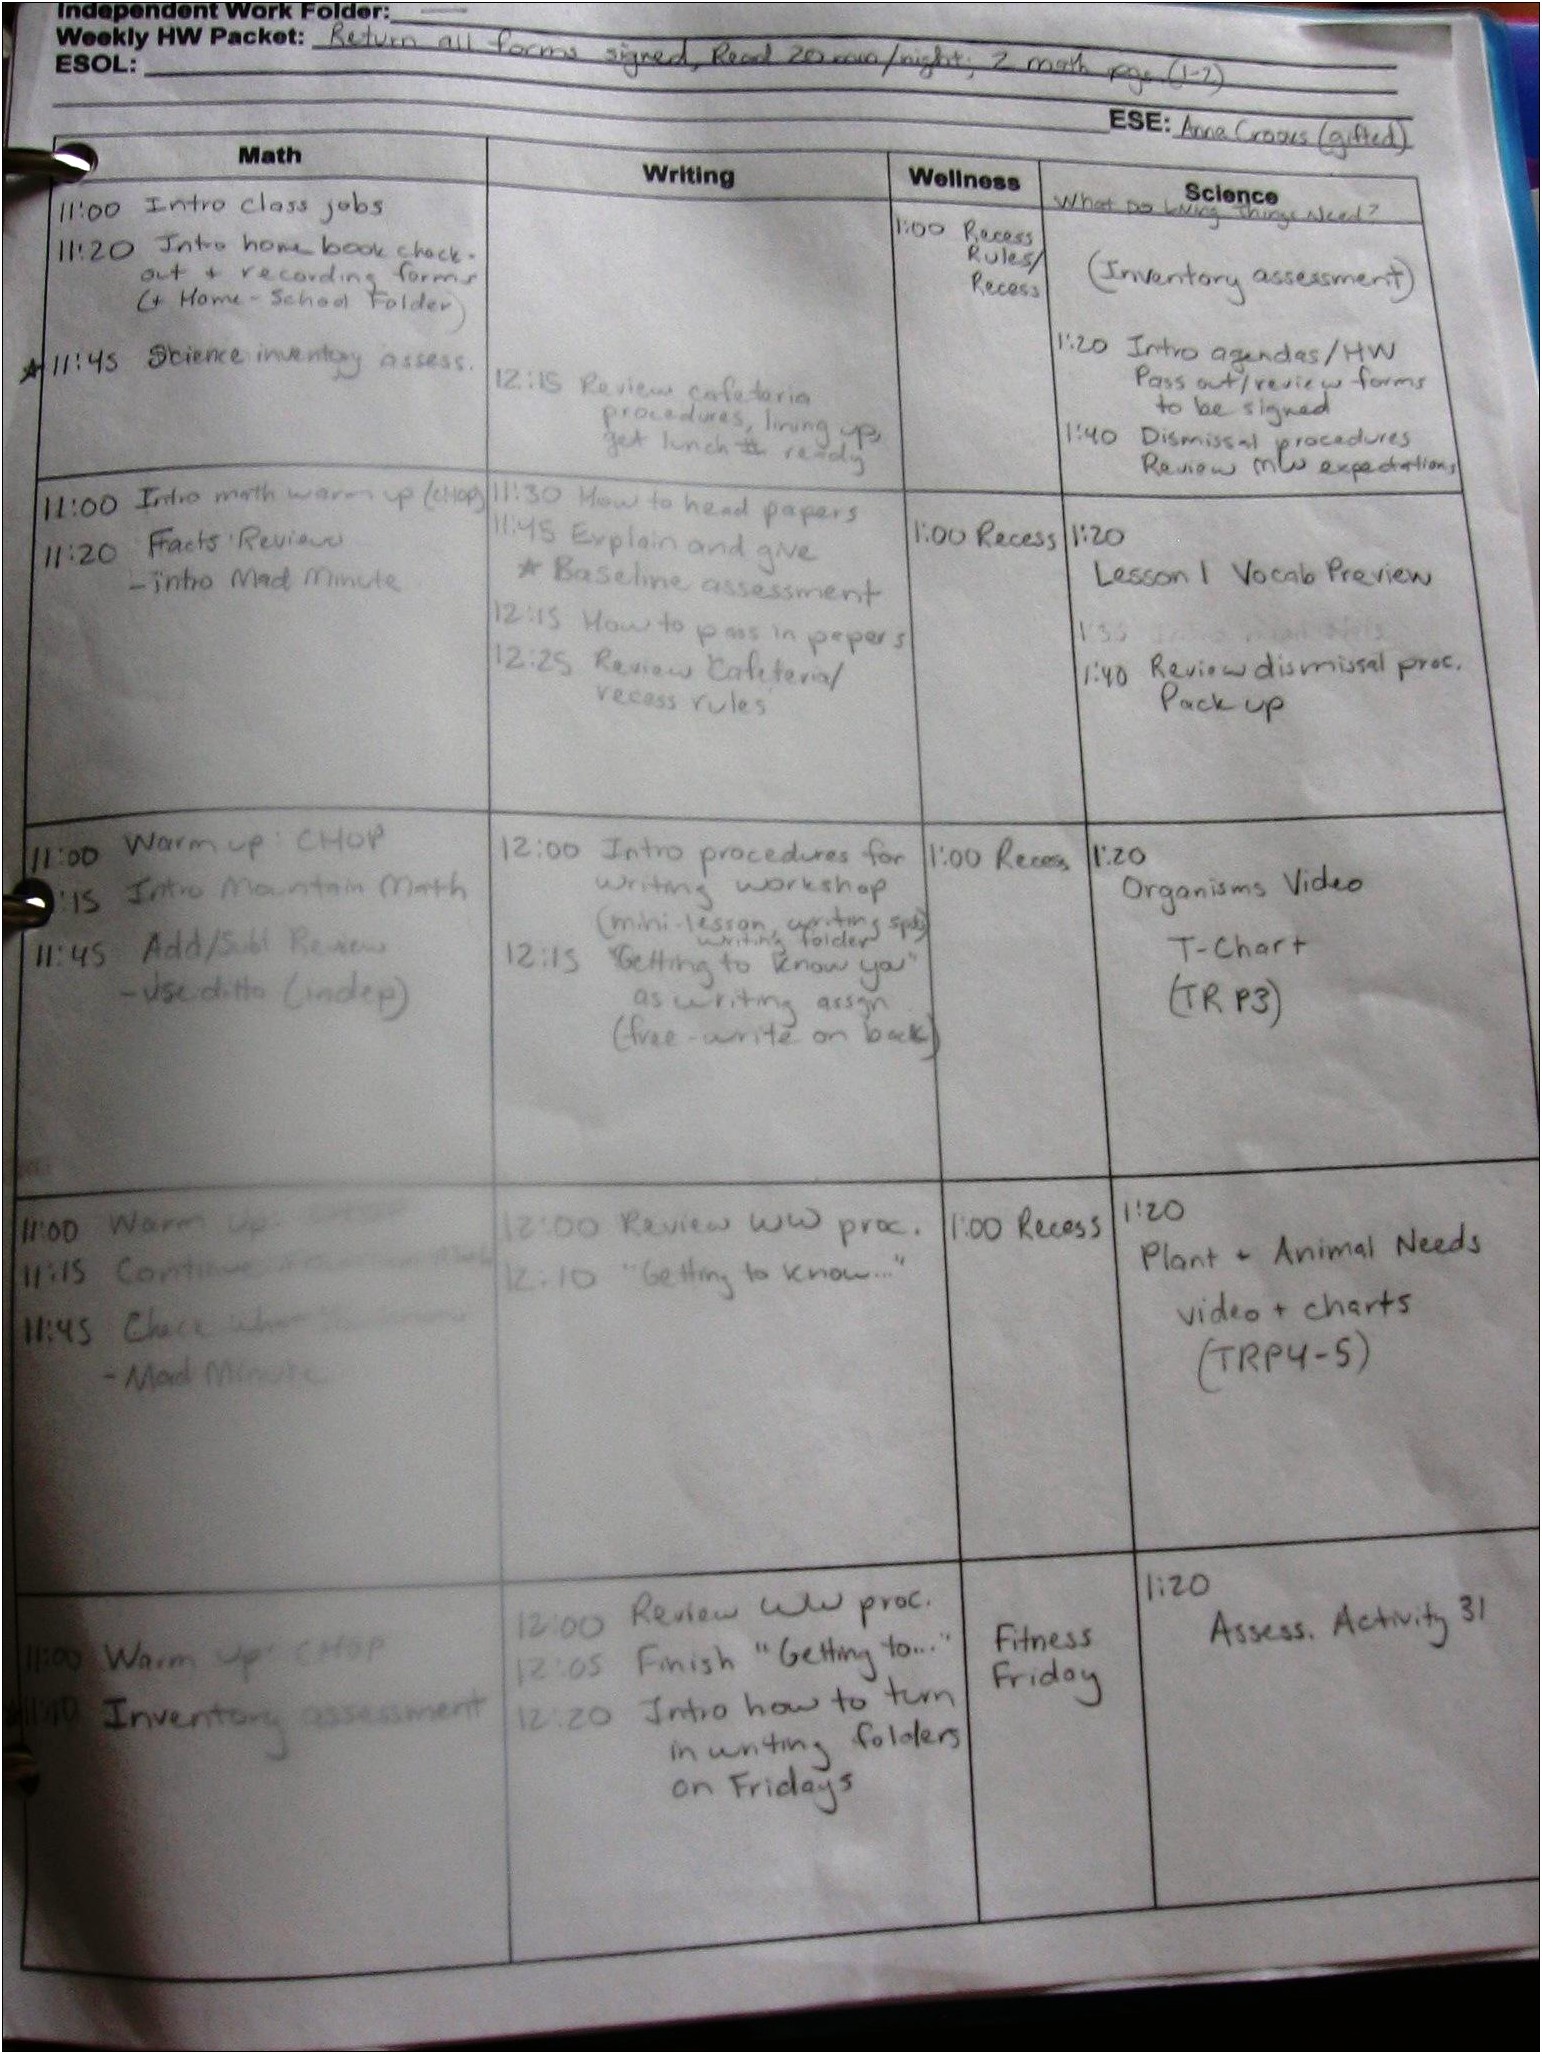 Independent Work Folder:
Weekly HW Packet: Return all forms signed, Read 20 min/night; 2 math pgs (1-2)
ESOL:
ESE: Anna (gifted)
Math
Writing
Wellness
Science
What Do Living Things Need?
11:00 Intro class jobs
11:20 Intro home book check-
out + recording forms
(+ Home-School Folder)
11:45 Science inventory assess.
12:15 Review cafeteria
procedures, lining up,
get lunch # ready
1:00 Recess
Rules/
Recess
(Inventory assessment)
1:20 Intro agendas/HW
Pass out/review forms
to be signed
1:40 Dismissal procedures
Review MW expectations
11:00 Intro math warm up (CHOP)
11:20 Facts Review
- intro Mad Minute
11:30 How to head papers
11:45 Explain and give
* Baseline assessment
12:15 How to pass in papers
12:25 Review Cafeteria/
recess rules
1:00 Recess
1:20
Lesson 1 Vocab Preview
1:40 Review dismissal proc.
Pack up
11:00 Warm up: CHOP
:15 Intro Mountain Math
11:45 Add/Subt Review
- use ditto (indep)
12:00 Intro procedures for
writing workshop
(mini-lesson, writing spots
writing folder
12:15 "Getting to know you"
as writing assgn
(free-write on back)
1:00 Recess
1:20
Organisms Video
T-Chart
(TR P3)
11:00 Warm up:
11:15 Continue
11:45 Check
- Mad Minute
12:00 Review WW proc.
12:10 "Getting to know..."
1:00 Recess
1:20
Plant + Animal Needs
video + charts
(TRP4-5)
11:00 Warm up: CHOP
Inventory assessment
12:00 Review WW proc.
12:05 Finish "Getting to..."
12:20 Intro how to turn
in writing folders
on Fridays
Fitness
Friday
1:20
Assess. Activity 31